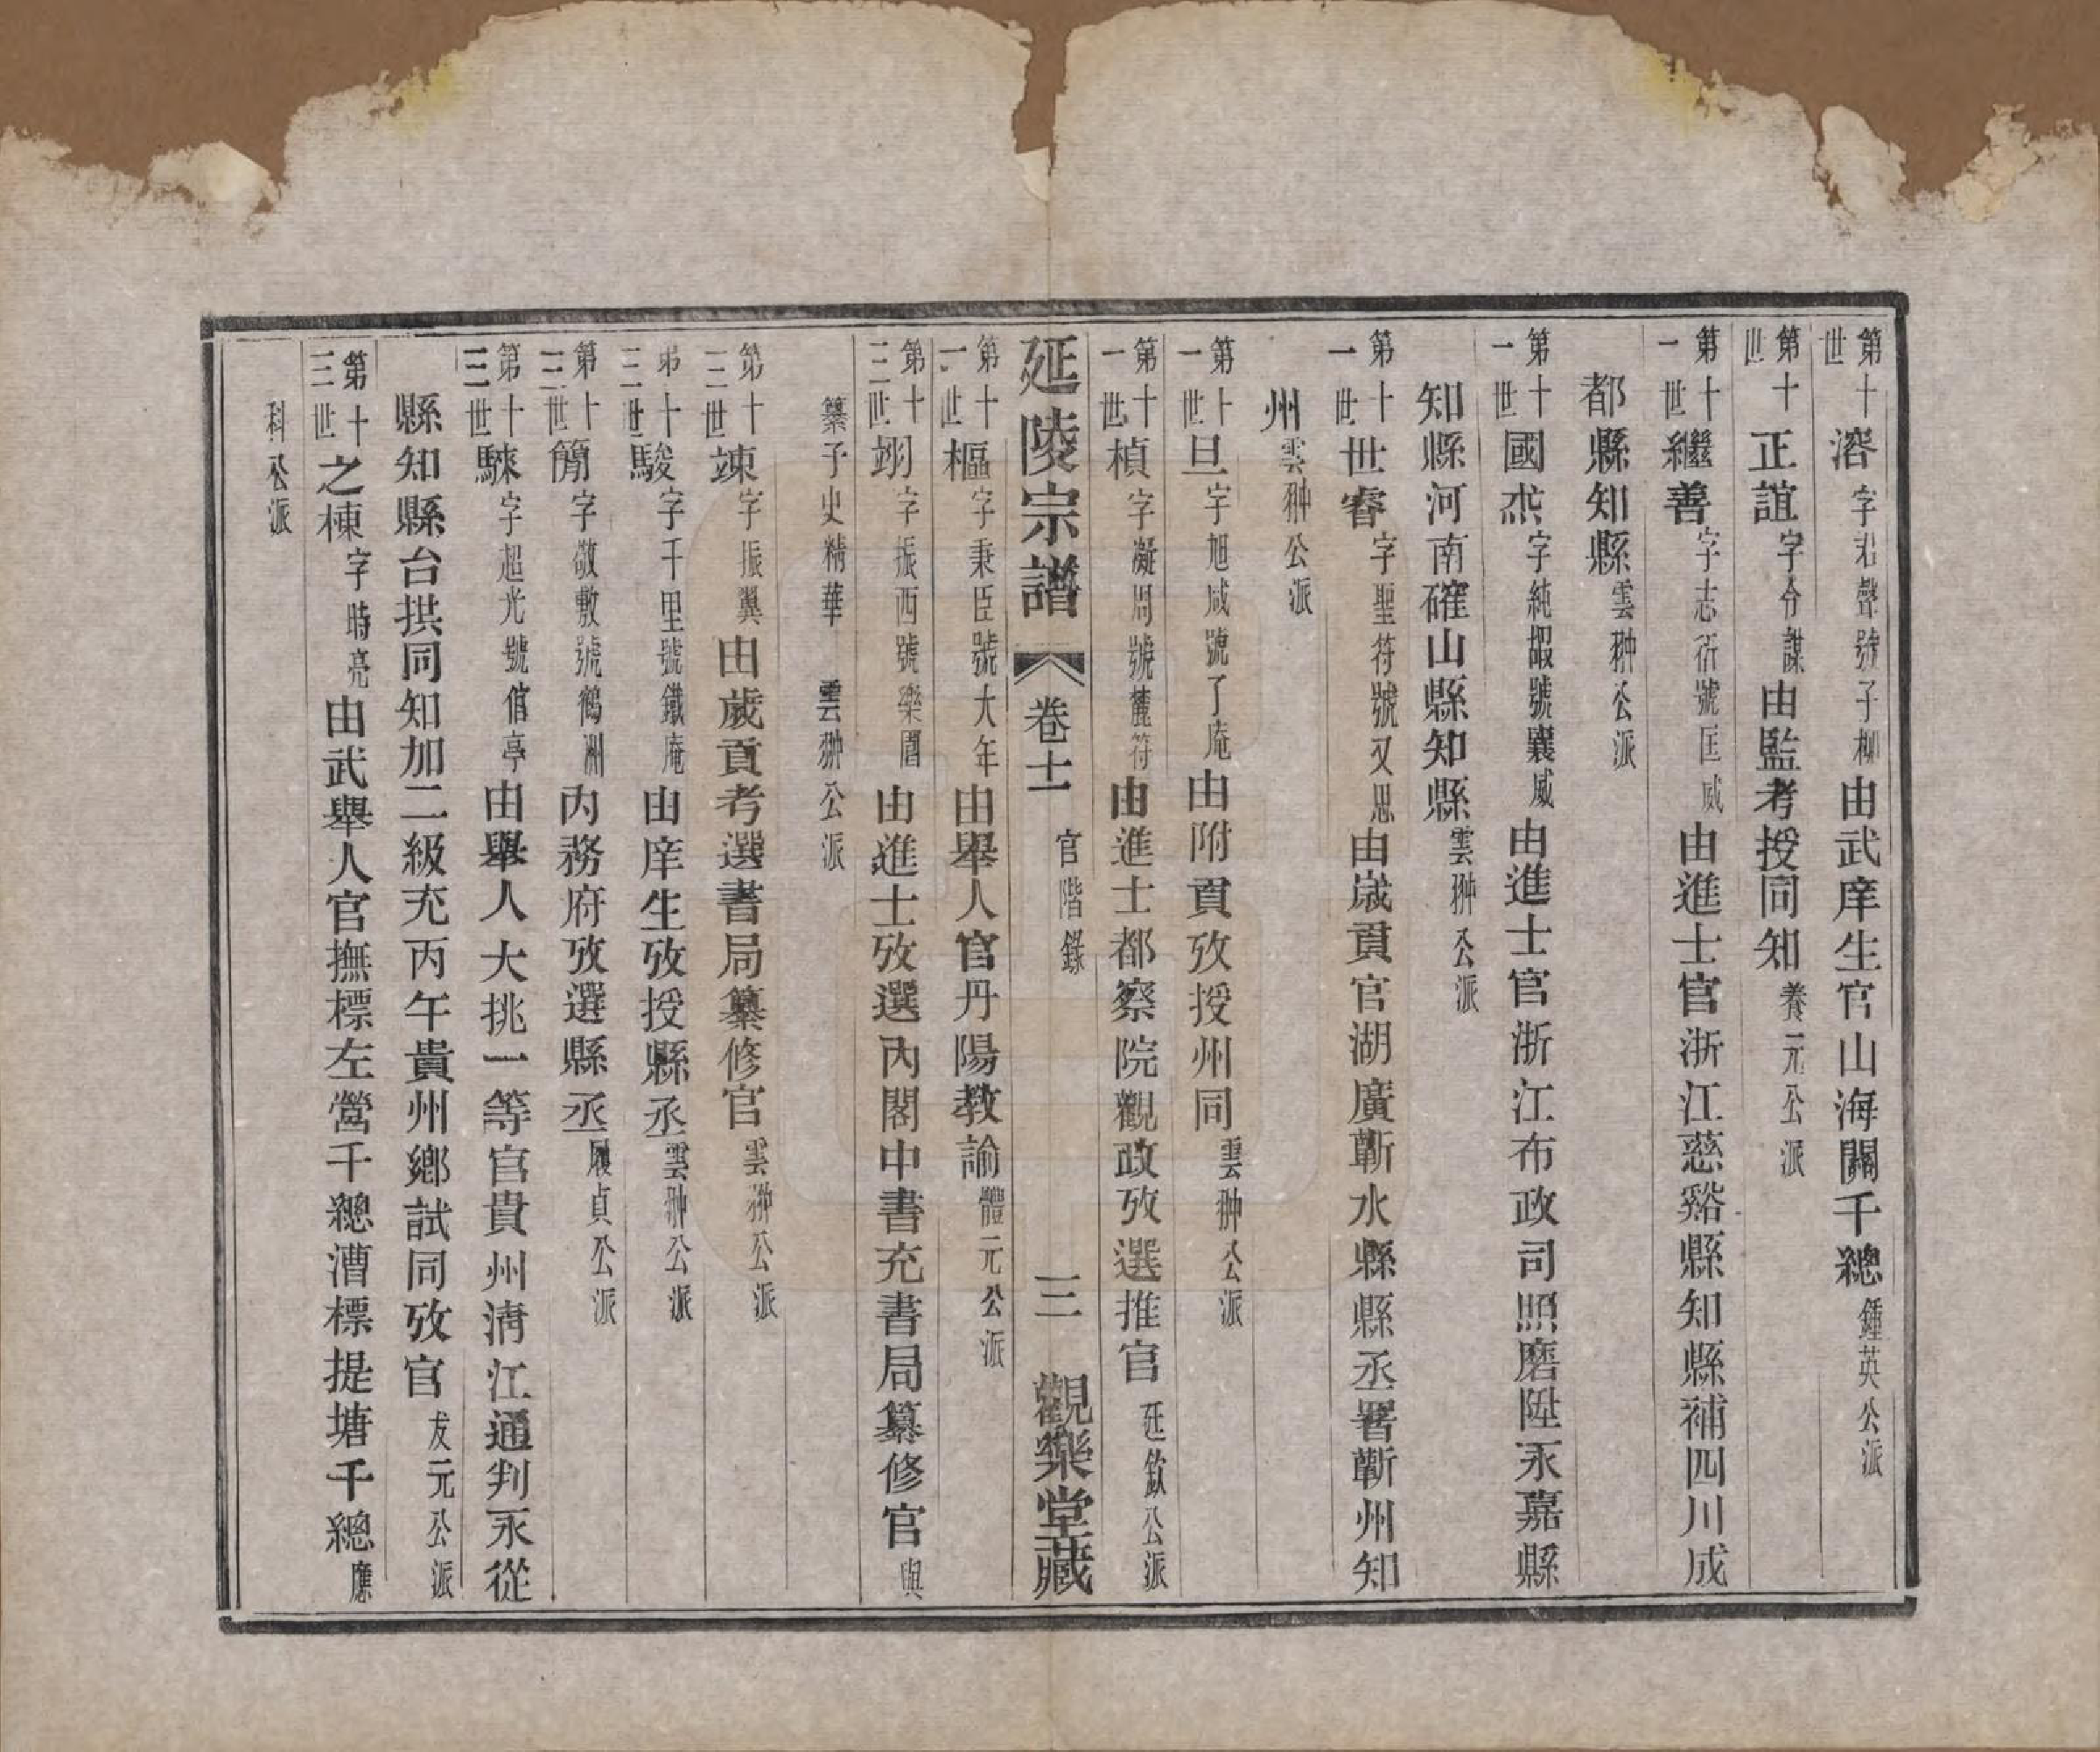 第十世 溶 字君聲號子柳 由武庠生官山海關千總 鍾英公派
第十世 正誼 字令謀 由監考授同知 養元公派
第十一世 繼善 字志衍號匡威 由進士官浙江慈谿縣知縣補四川成
都縣知縣 雲翀公派
第十一世 國杰 字純嘏號襄威 由進士官浙江布政司照磨陞永嘉縣
知縣河南確山縣知縣 雲翀公派
第十一世 世睿 字聖符號又思 由歲貢官湖廣蘄水縣縣丞署蘄州知
州 雲翀公派
第十一世 旦 字旭咸號了庵 由附貢攷授州同 雲翀公派
第十一世 楨 字凝周號麓符 由進士都察院觀政攷選推官 延欽公派
延陵宗譜 卷十一 官階錄 三 觀樂堂藏
第十一世 樞 字秉臣號大年 由舉人官丹陽教諭 體元公派
第十二世 翊 字振西號樂閶 由進士攷選內閣中書充書局纂修官 與
纂子史精華 雲翀公派
第十二世 竦 字振翼 由歲貢考選書局纂修官 雲翀公派
第十二世 駿 字千里號鐵庵 由庠生攷授縣丞 雲翀公派
第十二世 簡 字敬敷號鶴洲 內務府攷選縣丞 履貞公派
第十三世 騋 字超光號倌亭 由舉人大挑一等官貴州清江通判永從
縣知縣台拱同知加二級充丙午貴州鄉試同攷官 友元公派
第十三世 之棟 字時亮 由武舉人官撫標左營千總漕標提塘千總 應
科公派